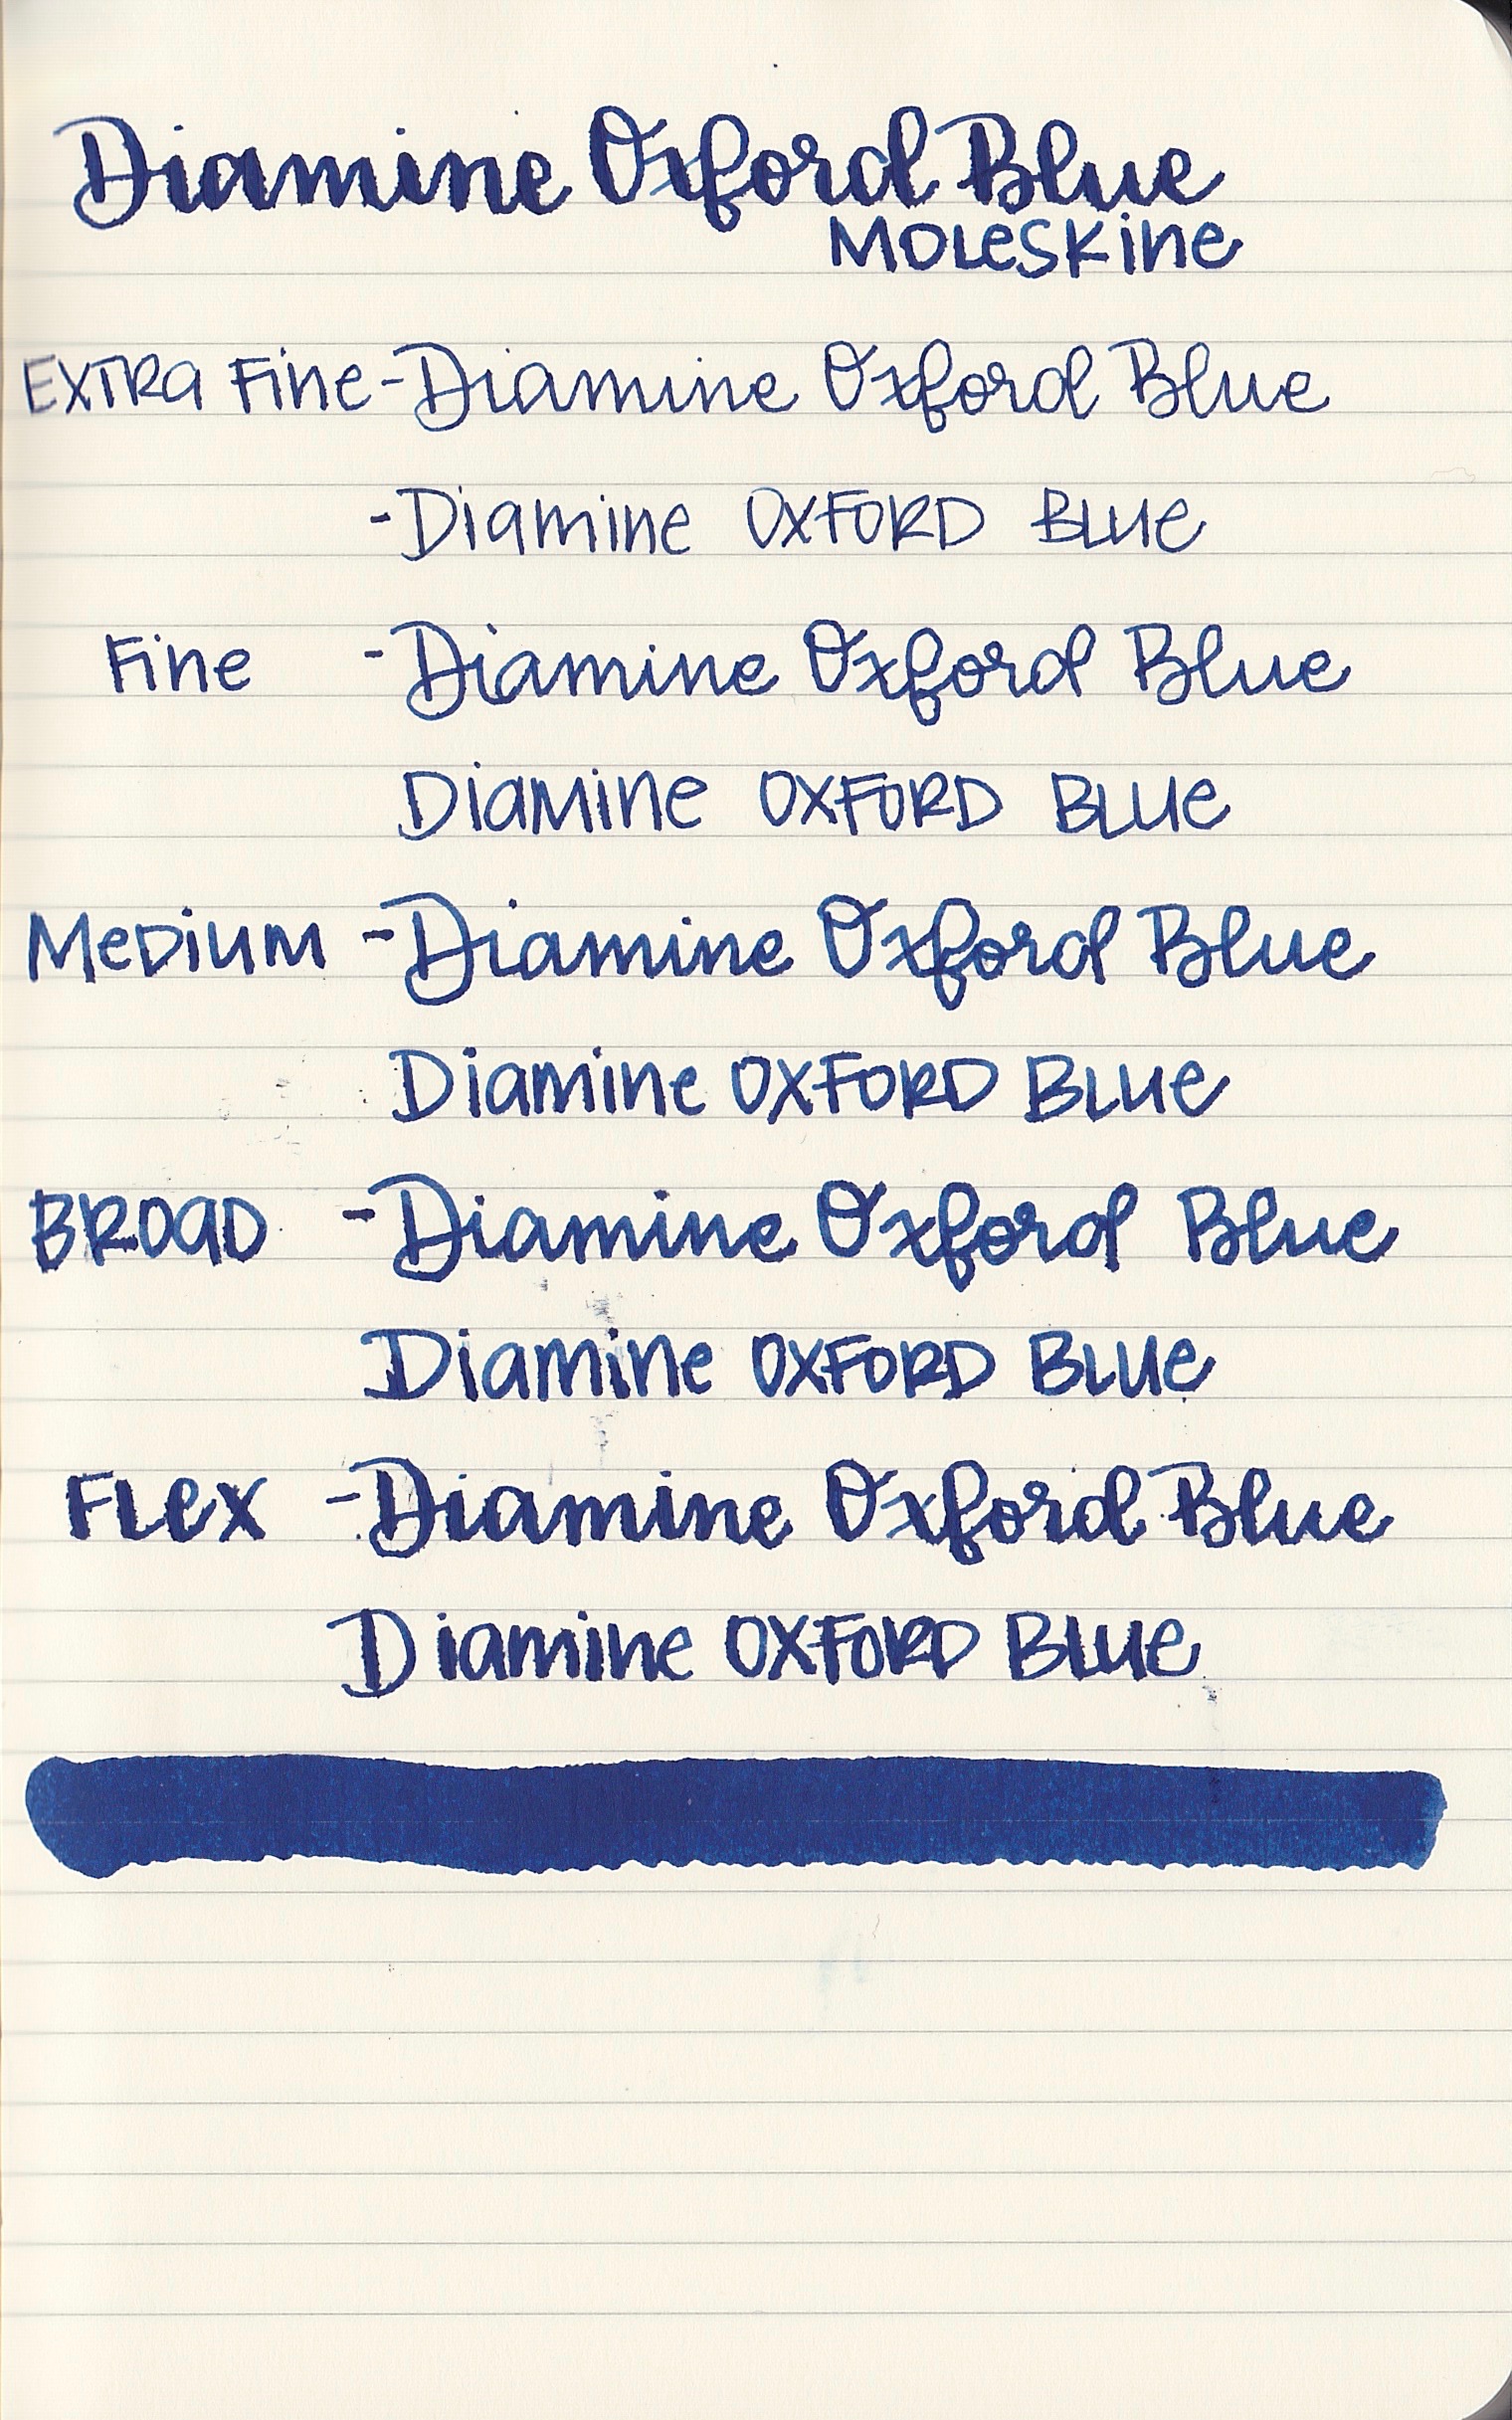 Diamine Oxford Blue
Moleskine
Extra Fine - Diamine Oxford Blue
- Diamine OXFORD BLUe
Fine - Diamine Oxford Blue
Diamine OXFORD BLUe
Medium - Diamine Oxford Blue
Diamine OXFORD BLUe
BROAD - Diamine Oxford Blue
Diamine OXFORD BLUe
FLex - Diamine Oxford Blue
Diamine OXFORD BLUe